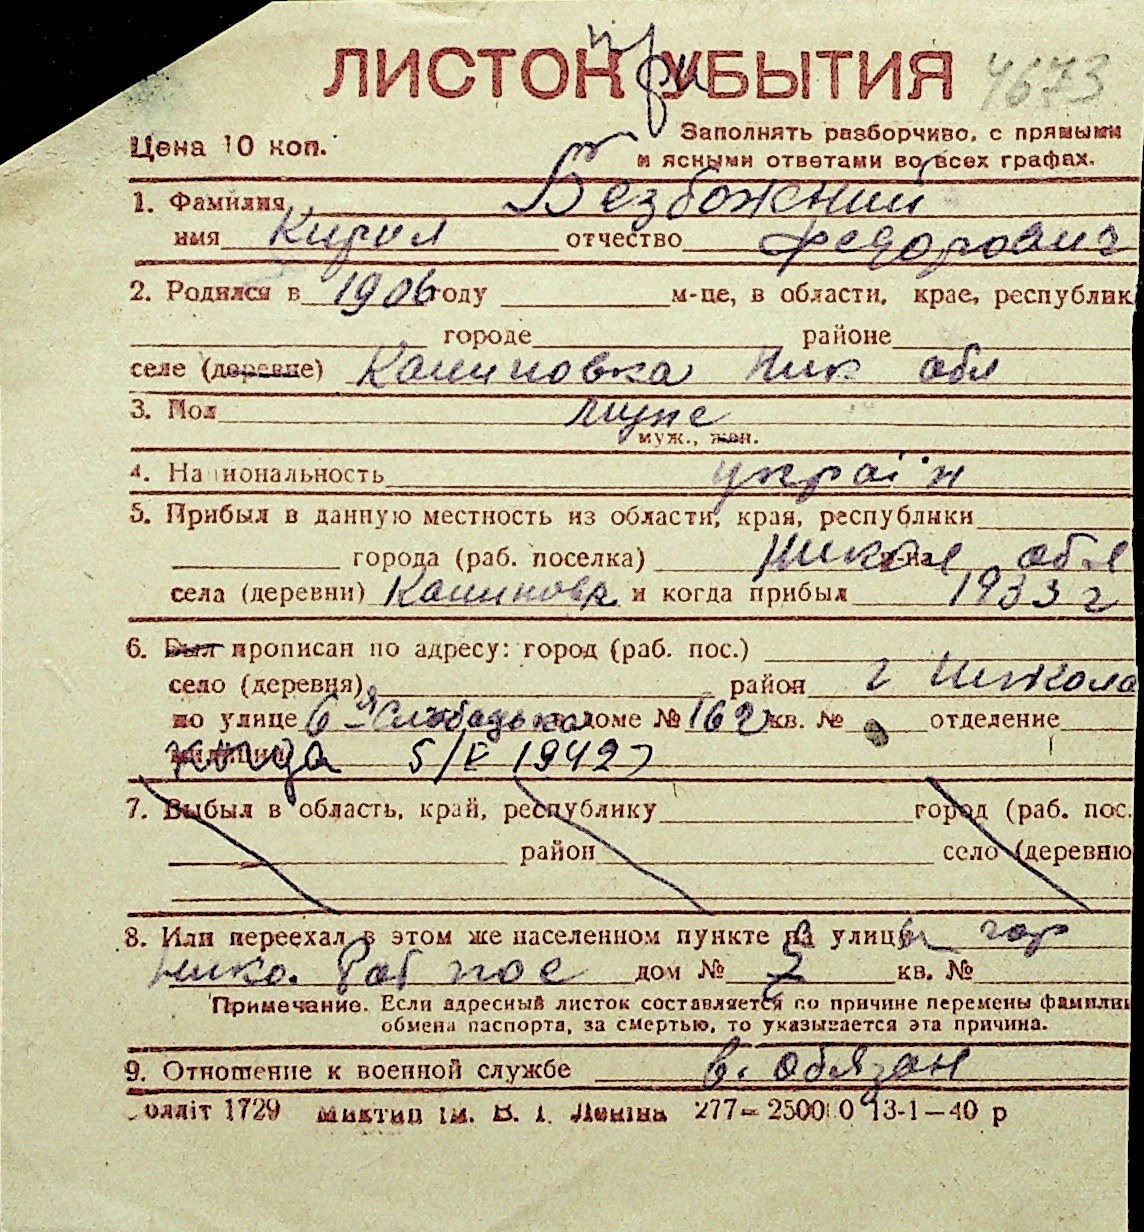 ЛИСТОК при УБЫТИЯ 4673
Цена 10 коп.
Заполнять разборчиво, с прямыми
и ясными ответами во всех графах.
1. Фамилия Безбожний
имя Кирил отчество Федорович
2. Родился в 1906 году м-це, в области, крае, республик
городе районе
селе (деревне) Калиновка Ник обл
3. Пол муже
муж., жен.
4. Национальность україн
5. Прибыл в данную местность из области, края, республики
города (раб. поселка) р-на Никол обл
села (деревни) Калиновк и когда прибыл 1933 г
6. Был прописан по адресу: город (раб. пос.)
село (деревня) район г Никола
по улице 6-я Слободска в доме № 162 кв. № отделение
милиции когда 5/V 1942
7. Выбыл в область, край, республику город (раб. пос.
район село (деревню
8. Или переехал в этом же населенном пункте на улицы гор
Нико. Раб пос дом № 7 кв. №
Примечание. Если адресный листок составляется по причине перемены фамилии
обмена паспорта, за смертью, то указывается эта причина.
9. Отношение к военной службе в. обязан
оллліт 1729 Миктип ім. В. І. Леніна 277–25000 13-1–40 р